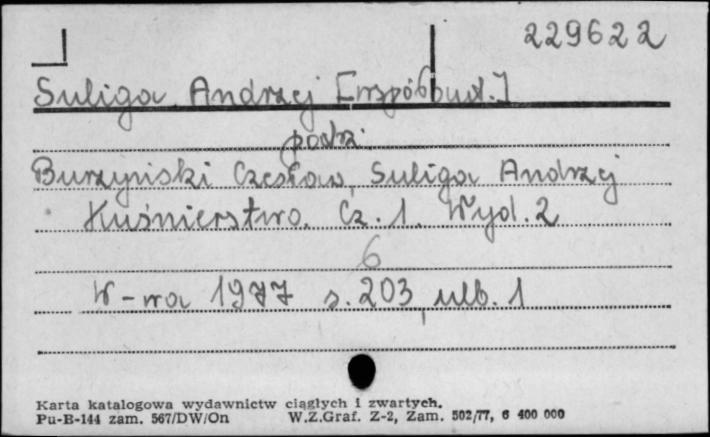 229622
Suliga Andrzej [współaut.]
patrz:
Burzyński Czesław, Suliga Andrzej
Kuśnierstwo. Cz. 1. Wyd. 2
6
W-wa 1977 s. 203, nlb. 1
Karta katalogowa wydawnictw ciągłych i zwartych.
Pu-B-144 zam. 567/DW/On W.Z.Graf. Z-2, Zam. 502/77, 6 400 000